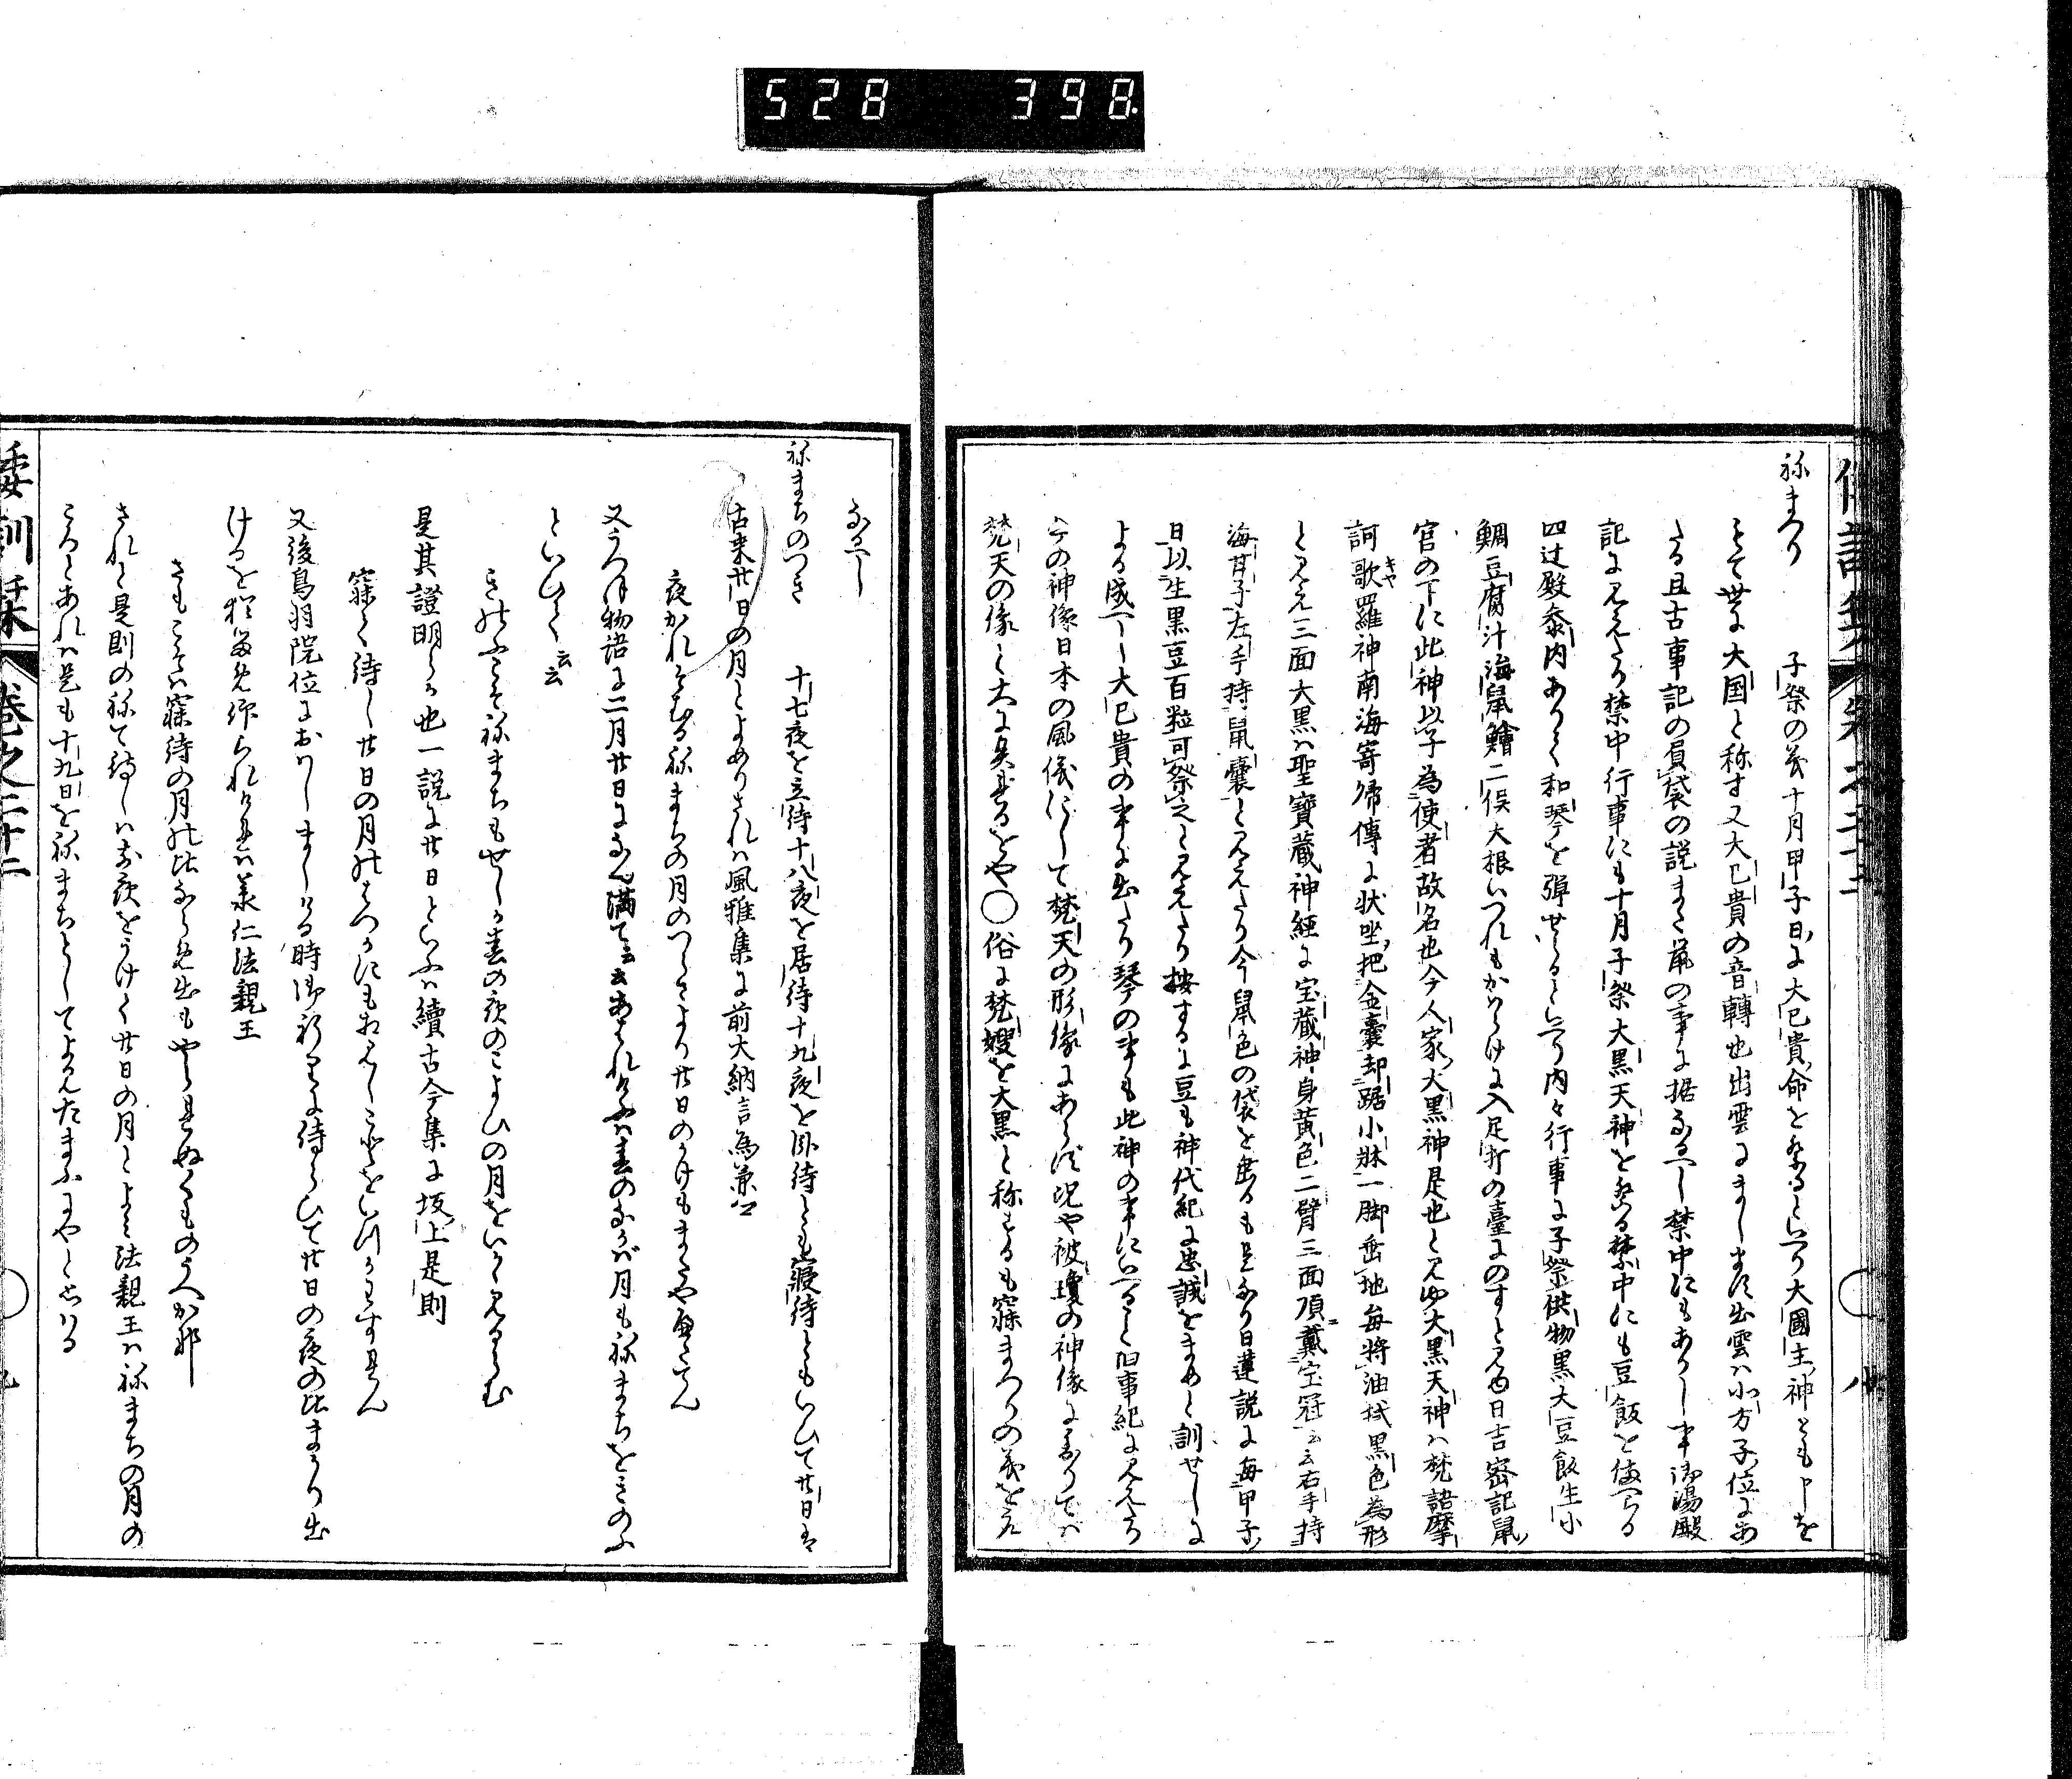 528 398
ねまつり 子祭の義十月甲子日に大己貴命を祭るといへり大國主神とも申を
もて世に大国と称す又大己貴の音轉也出雲にまします出雲ハ北方子位にあ
たる且古事記の負袋の説また鼠の事に据なるへし禁中にもありし事御湯殿
記に見えたり禁中行事にも十月子祭大黒天神を祭る禁中にも豆飯を備へらる
四辻殿参内ありて和琴を弾せらるといへり内々行事に子祭供物黒大豆飯生小
鯛豆腐汁海鼠鱠二俣大根いつれもかはらけに入足打の臺にのすと見ゆ日吉密記鼠
官の下に此神以子為使者故名也今人家大黒神是也と見ゆ大黒天神ハ梵語摩
訶歌羅神南海寄帰傳に状坐把金嚢却踞小牀一脚垂地毎将油拭黒色為形
と見え三面大黒ハ聖寶蔵神經に宝蔵神身黄色二臂三面頂戴宝冠云云右手持
海甘子左手持鼠嚢と見えたり今鼠色の袋を垂るも是なり日蓮説に毎甲子
日以生黒豆百粒可祭之と見えたり按するに豆も神代紀に忠誠をまめと訓せしに
よる成へし大己貴の事に出たり琴の事も此神の事にいへること旧事紀に見えたり
今の神像日本の風儀にして梵天の形像にあらず況や被瓊の神像に至りてハ
梵天の像と大に異なるをや○俗に梵嫂を大黒と称するも寐まつりの義を云
なるへし
ねまちのつき 十七夜を立待十八夜を居待十九夜を臥待とも寝待ともいひて廿日は
古来廿日の月とよめりされハ風雅集に前大納言為兼公
夜かれそむるねまちの月のつらさより廿日のかけもまたやへたてん
又うつほ物語に二月廿日になん満て云云あられけふハ春のなかば月もねまちをきのふ
といひて云云
きのふこそねまちもせしか春の夜のこよひの月をいかゝ見るらむ
是其證明らか也一説に廿日といふハ續古今集に坂上是則
寐て待し廿日の月のはつかにもあひみしことをいつかわすれん
又後鳥羽院位におハしましける時御祈りに侍らひて廿日の夜の比まかり出
けるを猶留め仰られけれハ承仁法親王
さもこそハ寐待の月の比ならめ出もやられぬ雲のうへか那
されと是則のねて待しハ前夜をうけて廿日の月とよミ法親王ハねまちの月の
ころとあれハ是も十九日をねまちとしてよみたまふにやといへる
倭訓栞 巻之二十二